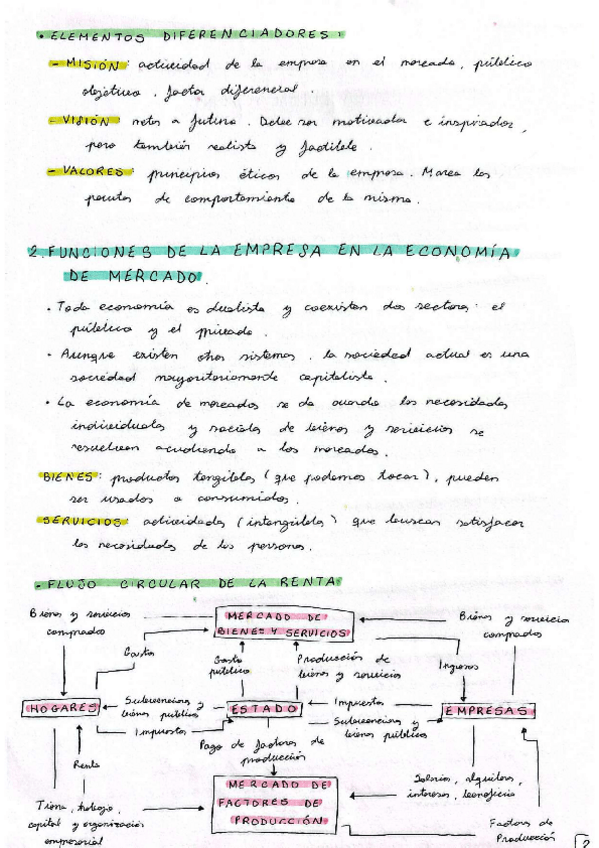 • ELEMENTOS DIFERENCIADORES:
- MISIÓN: actividad de la empresa en el mercado, público
objetivo, factor diferencial.
- VISIÓN: metas a futuro. Debe ser motivadora e inspirador,
pero también realista y factible.
- VALORES: principios éticos de la empresa. Marca las
pautas de comportamiento de la misma.
2. FUNCIONES DE LA EMPRESA EN LA ECONOMÍA
DE MERCADO.
• Toda economía es dualista y coexisten dos sectores: el
público y el privado.
• Aunque existen otros sistemas, la sociedad actual es una
sociedad mayoritariamente capitalista.
• La economía de mercados se da cuando las necesidades
individuales y sociales de bienes y servicios se
resuelven acudiendo a los mercados.
BIENES: productos tangibles (que podemos tocar), pueden
ser usados o consumidos.
SERVICIOS: actividades (intangibles) que buscan satisfacer
las necesidades de las personas.
- FLUJO CIRCULAR DE LA RENTA
Bienes y servicios
comprados
MERCADO DE
BIENES Y SERVICIOS
Bienes y servicios
comprados
Gastos
Gasto
público
Producción de
bienes y servicios
Ingresos
HOGARES
Subvenciones y
bienes públicos
ESTADO
Impuestos
EMPRESAS
Impuestos
Subvenciones y
bienes públicos
Pago de factores de
producción
Renta
MERCADO DE
FACTORES DE
PRODUCCIÓN
Salarios, alquileres,
intereses, beneficio
Tierra, trabajo,
capital y organización
empresarial
Factores de
Producción
2